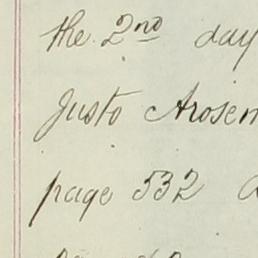 the 2nd day
Justo Arosem
page 532